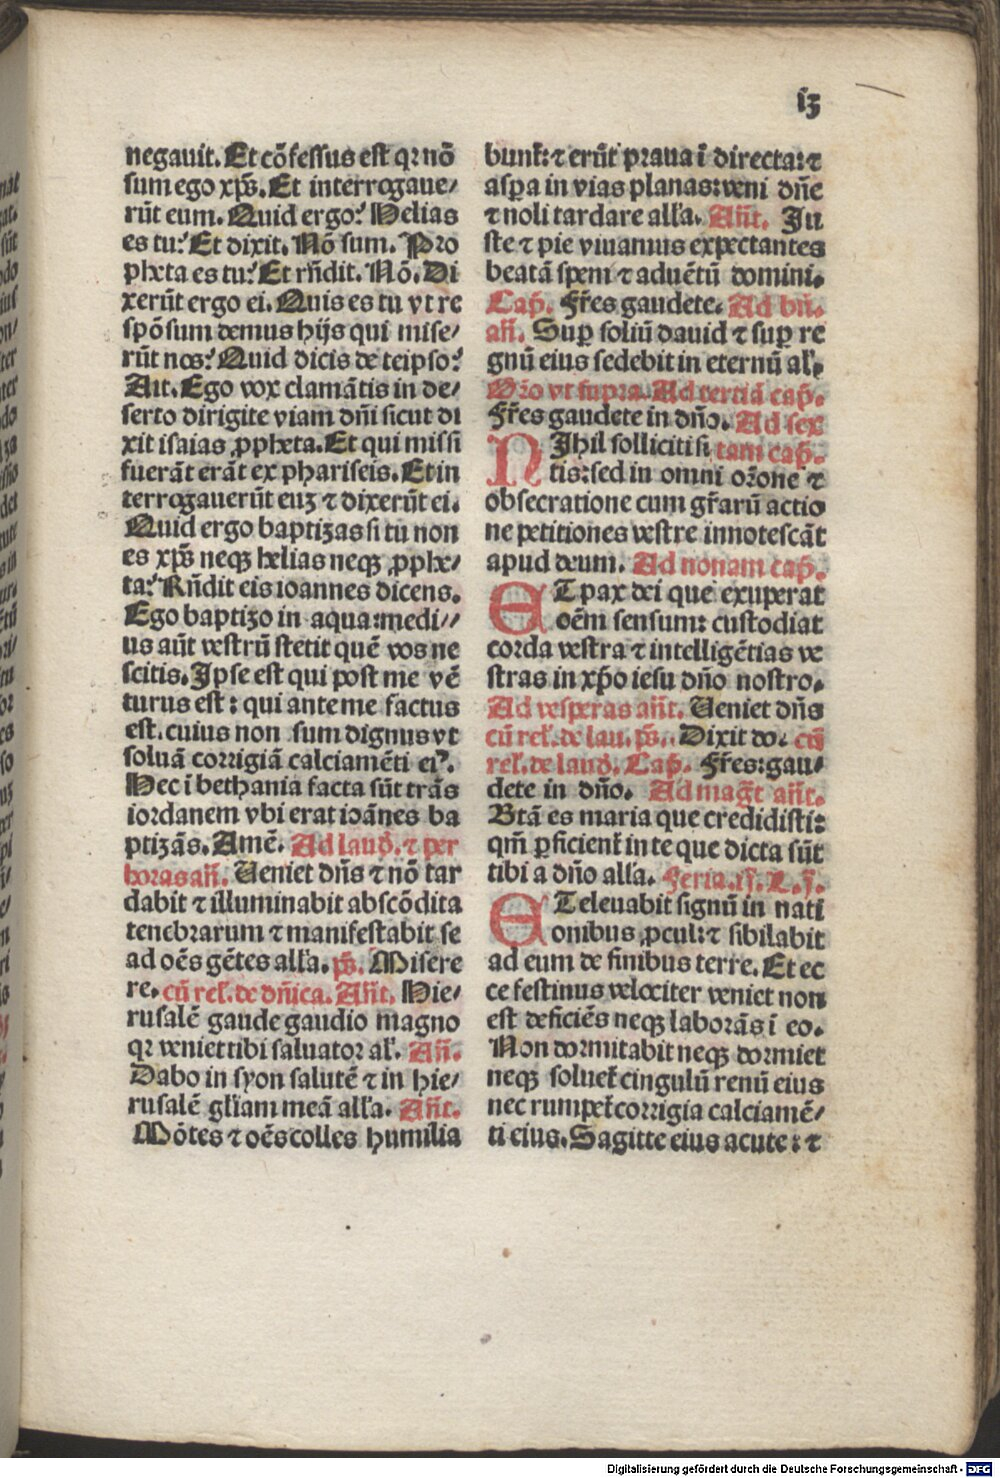 13
negauit. Et cõfessus est qꝛ nõ
sum ego xp̃s. Et interrogaue/
rũt eum. Quid ergo? Helias
es tu? Et dixit. Nõ sum. Pro
pheta es tu? Et rñdit. Nõ. Di
xerũt ergo ei. Quis es tu vt re
spõsum demus hijs qui mise/
rũt nos? Quid dicis de teipso?
Ait. Ego vox clamãtis in de/
serto dirigite viam dñi sicut di
xit isaias ꝓpheta. Et qui missi
fuerãt erãt ex phariseis. Et in
terrogauerũt euꝫ ⁊ dixerũt ei.
Quid ergo baptizas si tu non
es xp̃s neqꝫ helias neqꝫ ꝓphe/
ta? Rñdit eis ioannes dicens.
Ego baptizo in aqua: medi//
us aũt vestrũ stetit quẽ vos ne
scitis. Ipse est qui post me vẽ
turus est: qui ante me factus
est. cuius non sum dignus vt
soluã corrigiã calciamẽti eiꝰ.
Hec ĩ bethania facta sũt trãs
iordanem vbi erat ioãnes ba
ptizãs. Amẽ. Ad laud̃. ⁊ per
horas añ. Ueniet dñs ⁊ nõ tar
dabit ⁊ illuminabit abscõdita
tenebrarum ⁊ manifestabit se
ad oẽs gẽtes alľa. p̃s. Misere
re. cũ reľ. de dñica. Añt. Hie/
rusalẽ gaude gaudio magno
qꝛ veniet tibi saluator aľ. Añ.
Dabo in syon salutẽ ⁊ in hie/
rusalẽ gľiam meã alľa. Añt.
Mõtes ⁊ oẽs colles humilia
bunt̃: ⁊ erũt praua ĩ directa: ⁊
aspa in vias planas: veni dñe
⁊ noli tardare alľa. Añt. Iu
ste ⁊ pie viuamus expectantes
beatã spem ⁊ aduẽtũ domini.
Cap̃. Fr̃es gaudete. Ad bñ.
añ. Suꝑ soliũ dauid ⁊ suꝑ re
gnũ eius sedebit in eternũ aľ.
Orõ vt supra. Ad tertiã cap̃.
Fr̃es gaudete in dño. Ad sex
NIhil solliciti si tam cap̃.
tis: sed in omni orõne ⁊
obsecratione cum gr̃arũ actio
ne petitiones vestre innotescãt
apud deum. Ad nonam cap̃.
ET pax dei que exuperat
oẽm sensum: custodiat
corda vestra ⁊ intelligẽtias ve
stras in xp̃o iesu dño nostro.
Ad vesperas añt. Ueniet dñs
cũ reľ. de lau. p̃s. Dixit do. cũ
reľ. de laud̃. Cap̃. Fr̃es: gau/
dete in dño. Ad mag̃t añt.
Btã es maria que credidisti:
qm̃ ꝑficient̃ in te que dicta sũt
tibi a dño alľa. Feria. ij. L. j.
ET leuabit signũ in nati
onibus ꝓcul: ⁊ sibilabit
ad eum de finibus terre. Et ec
ce festinus velociter veniet non
est deficiẽs neqꝫ laborãs ĩ eo.
Non dormitabit neqꝫ dormiet
neqꝫ soluet̃ cingulũ renũ eius
nec rumpet̃ corrigia calciamẽ/
ti eius. Sagitte eius acute: ⁊
Digitalisierung gefördert durch die Deutsche Forschungsgemeinschaft - DFG